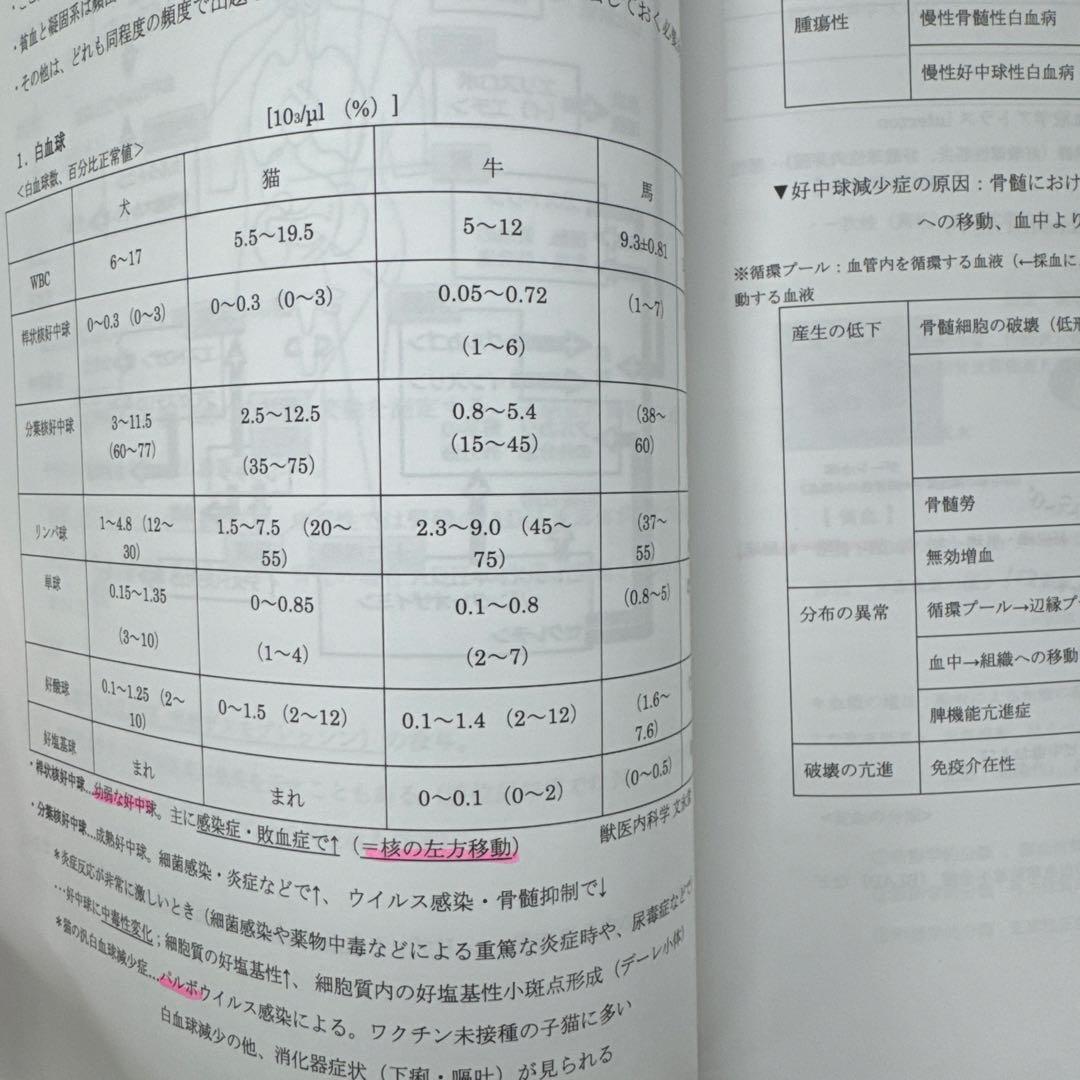 ・貧血と凝固系は頻
・その他は、どれも同程度の頻度で出題
しておく必要
1. 白血球
[10₃/μl （%）]
<白血球数、百分比正常値>
犬 猫 牛 馬
WBC 6～17 5.5～19.5 5～12 9.3±0.81
桿状核好中球 0～0.3（0～3） 0～0.3（0～3） 0.05～0.72 （1～6） （1～7）
分葉核好中球 3～11.5 （60～77） 2.5～12.5 （35～75） 0.8～5.4 （15～45） （38～60）
リンパ球 1～4.8（12～30） 1.5～7.5（20～55） 2.3～9.0（45～75） （37～55）
単球 0.15～1.35 （3～10） 0～0.85 （1～4） 0.1～0.8 （2～7） （0.8～5）
好酸球 0.1～1.25（2～10） 0～1.5（2～12） 0.1～1.4（2～12） （1.6～7.6）
好塩基球 まれ まれ 0～0.1（0～2） （0～0.5）
獣医内科学 文永
・桿状核好中球…幼弱な好中球。主に感染症・敗血症で↑（＝核の左方移動）
・分葉核好中球…成熟好中球。細菌感染・炎症などで↑、ウイルス感染・骨髄抑制で↓
＊炎症反応が非常に激しいとき（細菌感染や薬物中毒などによる重篤な炎症時や、尿毒症などで
…好中球に中毒性変化；細胞質の好塩基性↑、細胞質内の好塩基性小斑点形成（デーレ小体）
＊猫の汎白血球減少症…パルボウイルス感染による。ワクチン未接種の子猫に多い
白血球減少の他、消化器症状（下痢・嘔吐）が見られる
腫瘍性 慢性骨髄性白血病
慢性好中球性白血病
▼好中球減少症の原因：骨髄におけ
への移動、血中より
※循環プール：血管内を循環する血液（←採血に
動する血液
産生の低下 骨髄細胞の破壊（低形
骨髄癆
無効造血
分布の異常 循環プール→辺縁プー
血中→組織への移動
脾機能亢進症
破壊の亢進 免疫介在性